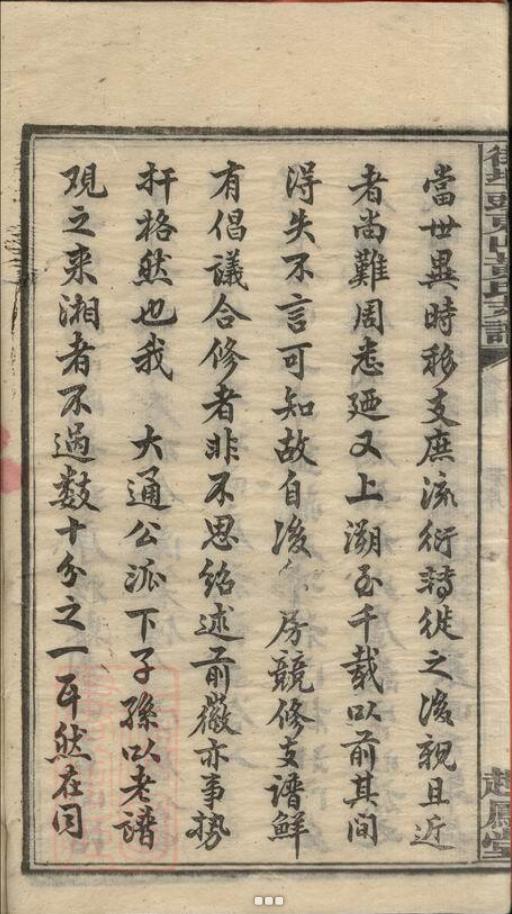 當世異時移支庶流衍轉徙之後親且近
者尚難周悉廼又上溯至千載以前其間
得失不言可知故自後房競修支譜鮮
有倡議合修者非不思紹述前徽亦事勢
扞格然也我　大通公派下子孫以老譜
观之来湘者不過數十分之一耳然在同
趙鳳堂